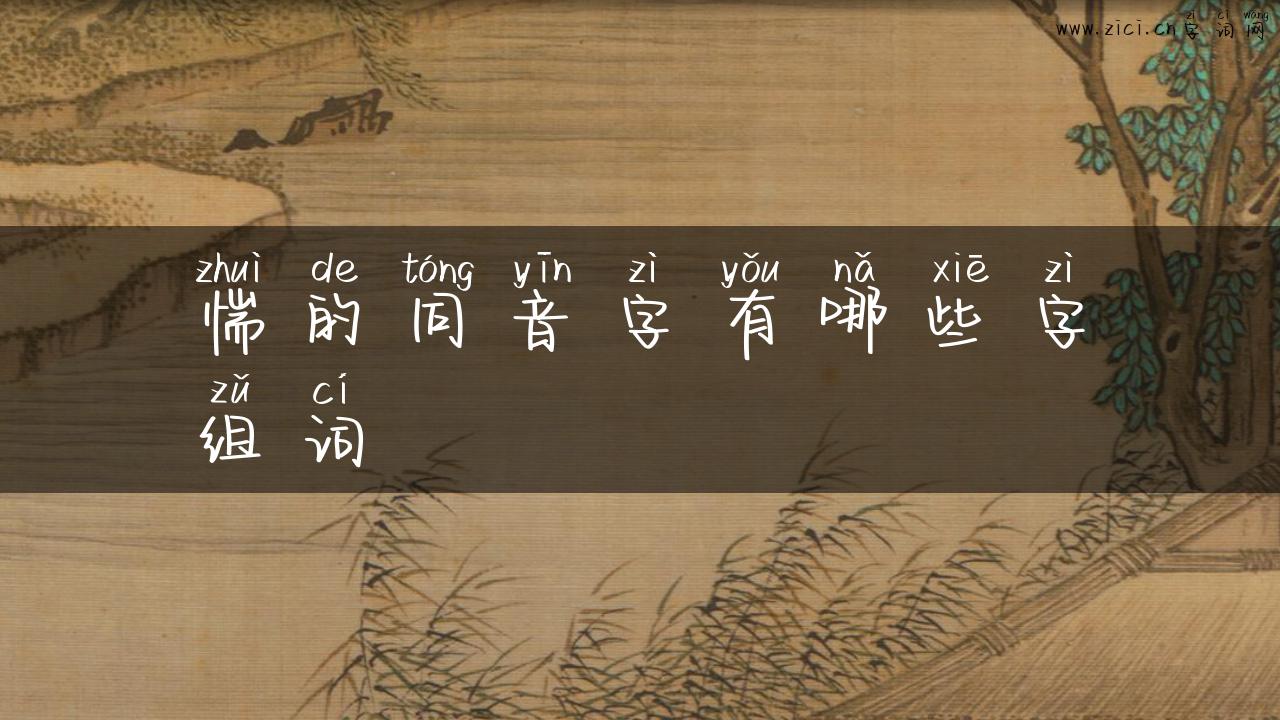 zì cí wǎng
www.zici.cn字词网
zhuì de tóng yīn zì yǒu nǎ xiē zì
惴的同音字有哪些字
zǔ cí
组词